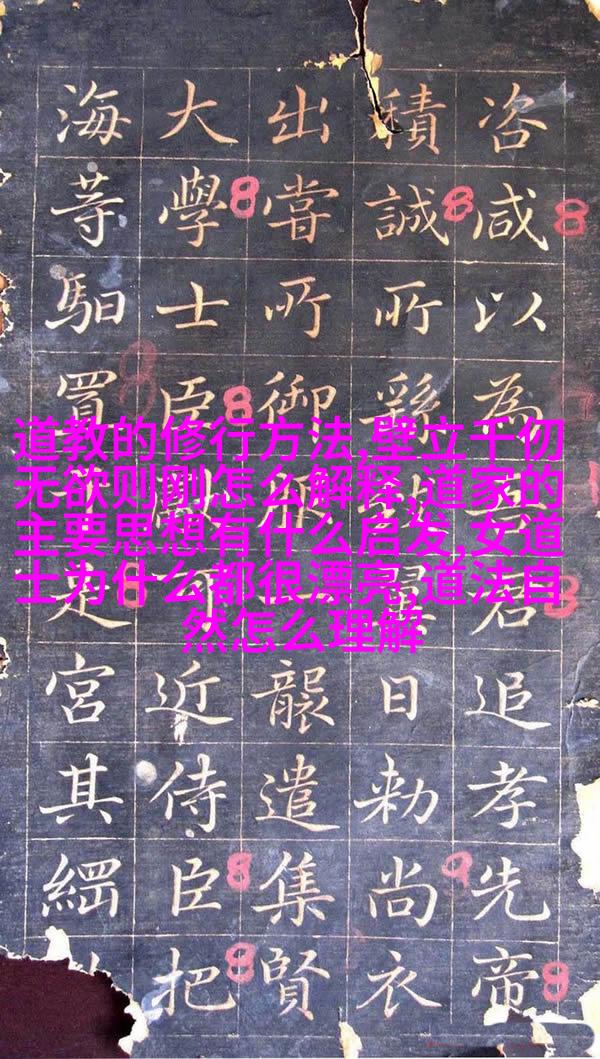 道教的修行方法,壁立千仞
无欲则刚怎么解释,道家的
主要思想有什么启发,女道
士为什么都很漂亮,道法自
然怎么理解
咨咸以為君追孝先帝
積誠所繇日勅尚衣
出嘗所御襲遣集賢
大學士臣近侍臣把
海等馹置宮其